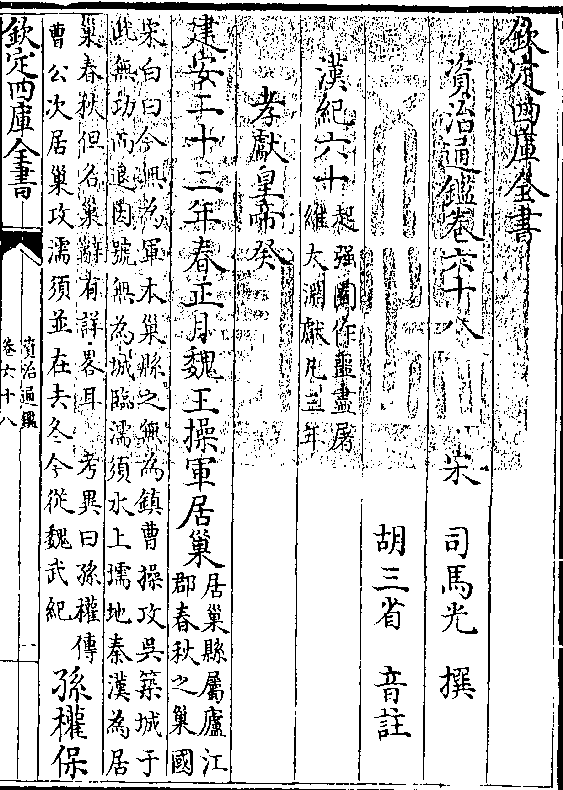 欽定四庫全書
資治通鑑卷六十八 宋 司馬光 撰
胡三省 音註
漢紀六十 起强圉作噩盡屠
維大淵獻凡三年
孝獻皇帝癸
建安二十二年春正月魏王操軍居巢 居巢縣屬廬江
郡春秋之巢國
宋白曰今無為軍本巢縣之無為鎮曹操攻吳築城于
此無功而退因號無為城臨濡須水上壖地秦漢為居
巢春秋但名巢辭有詳畧耳 考異曰孫權傳
曹公次居巢攻濡須並在去冬今從魏武紀
孫權保
欽定四庫全書
資治通鑑
卷六十八